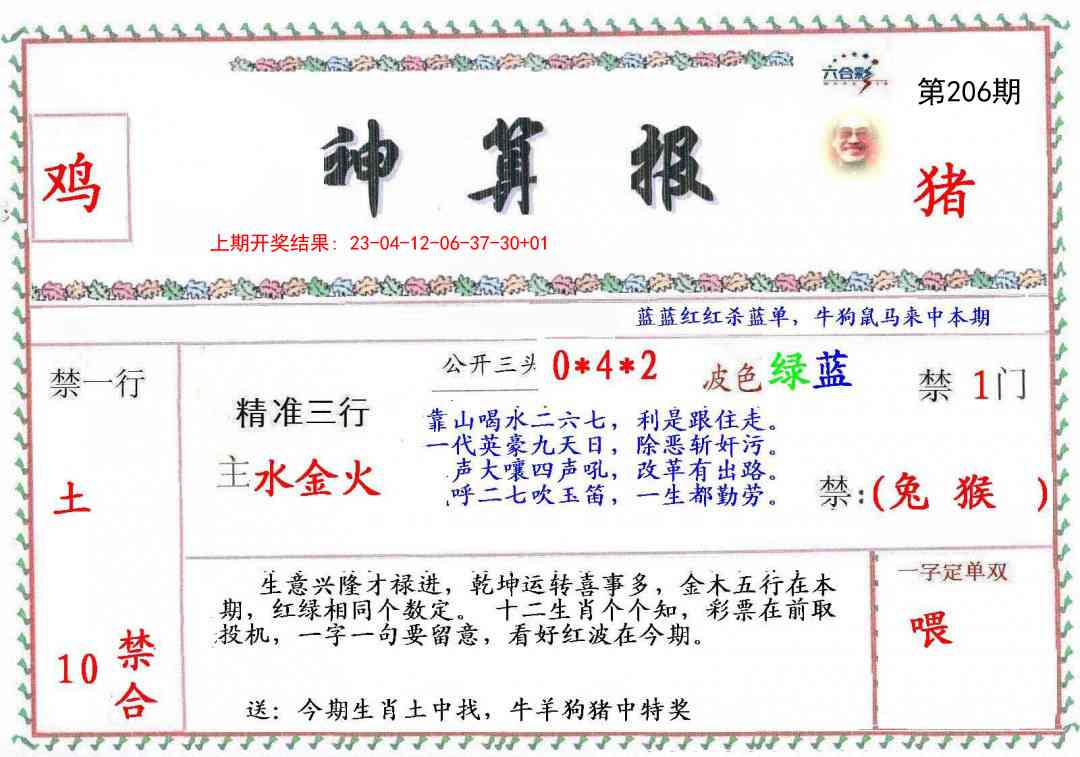 六合彩
第206期
鸡
神算报
猪
上期开奖结果：23-04-12-06-37-30+01
蓝蓝红红杀蓝单，牛狗鼠马来中本期
禁一行
土
10
禁合
精准三行
主水金火
公开三头 0*4*2 波色绿蓝
靠山喝水二六七，利是跟住走。
一代英豪九天日，除恶斩奸污。
声大嚷四声吼，改革有出路。
呼二七吹玉笛，一生都勤劳。
禁 1门
禁:(兔 猴 )
生意兴隆才禄进，乾坤运转喜事多，金木五行在本
期，红绿相同个数定。 十二生肖个个知，彩票在前取
投机，一字一句要留意，看好红波在今期。
送：今期生肖土中找，牛羊狗猪中特奖
一字定单双
喂